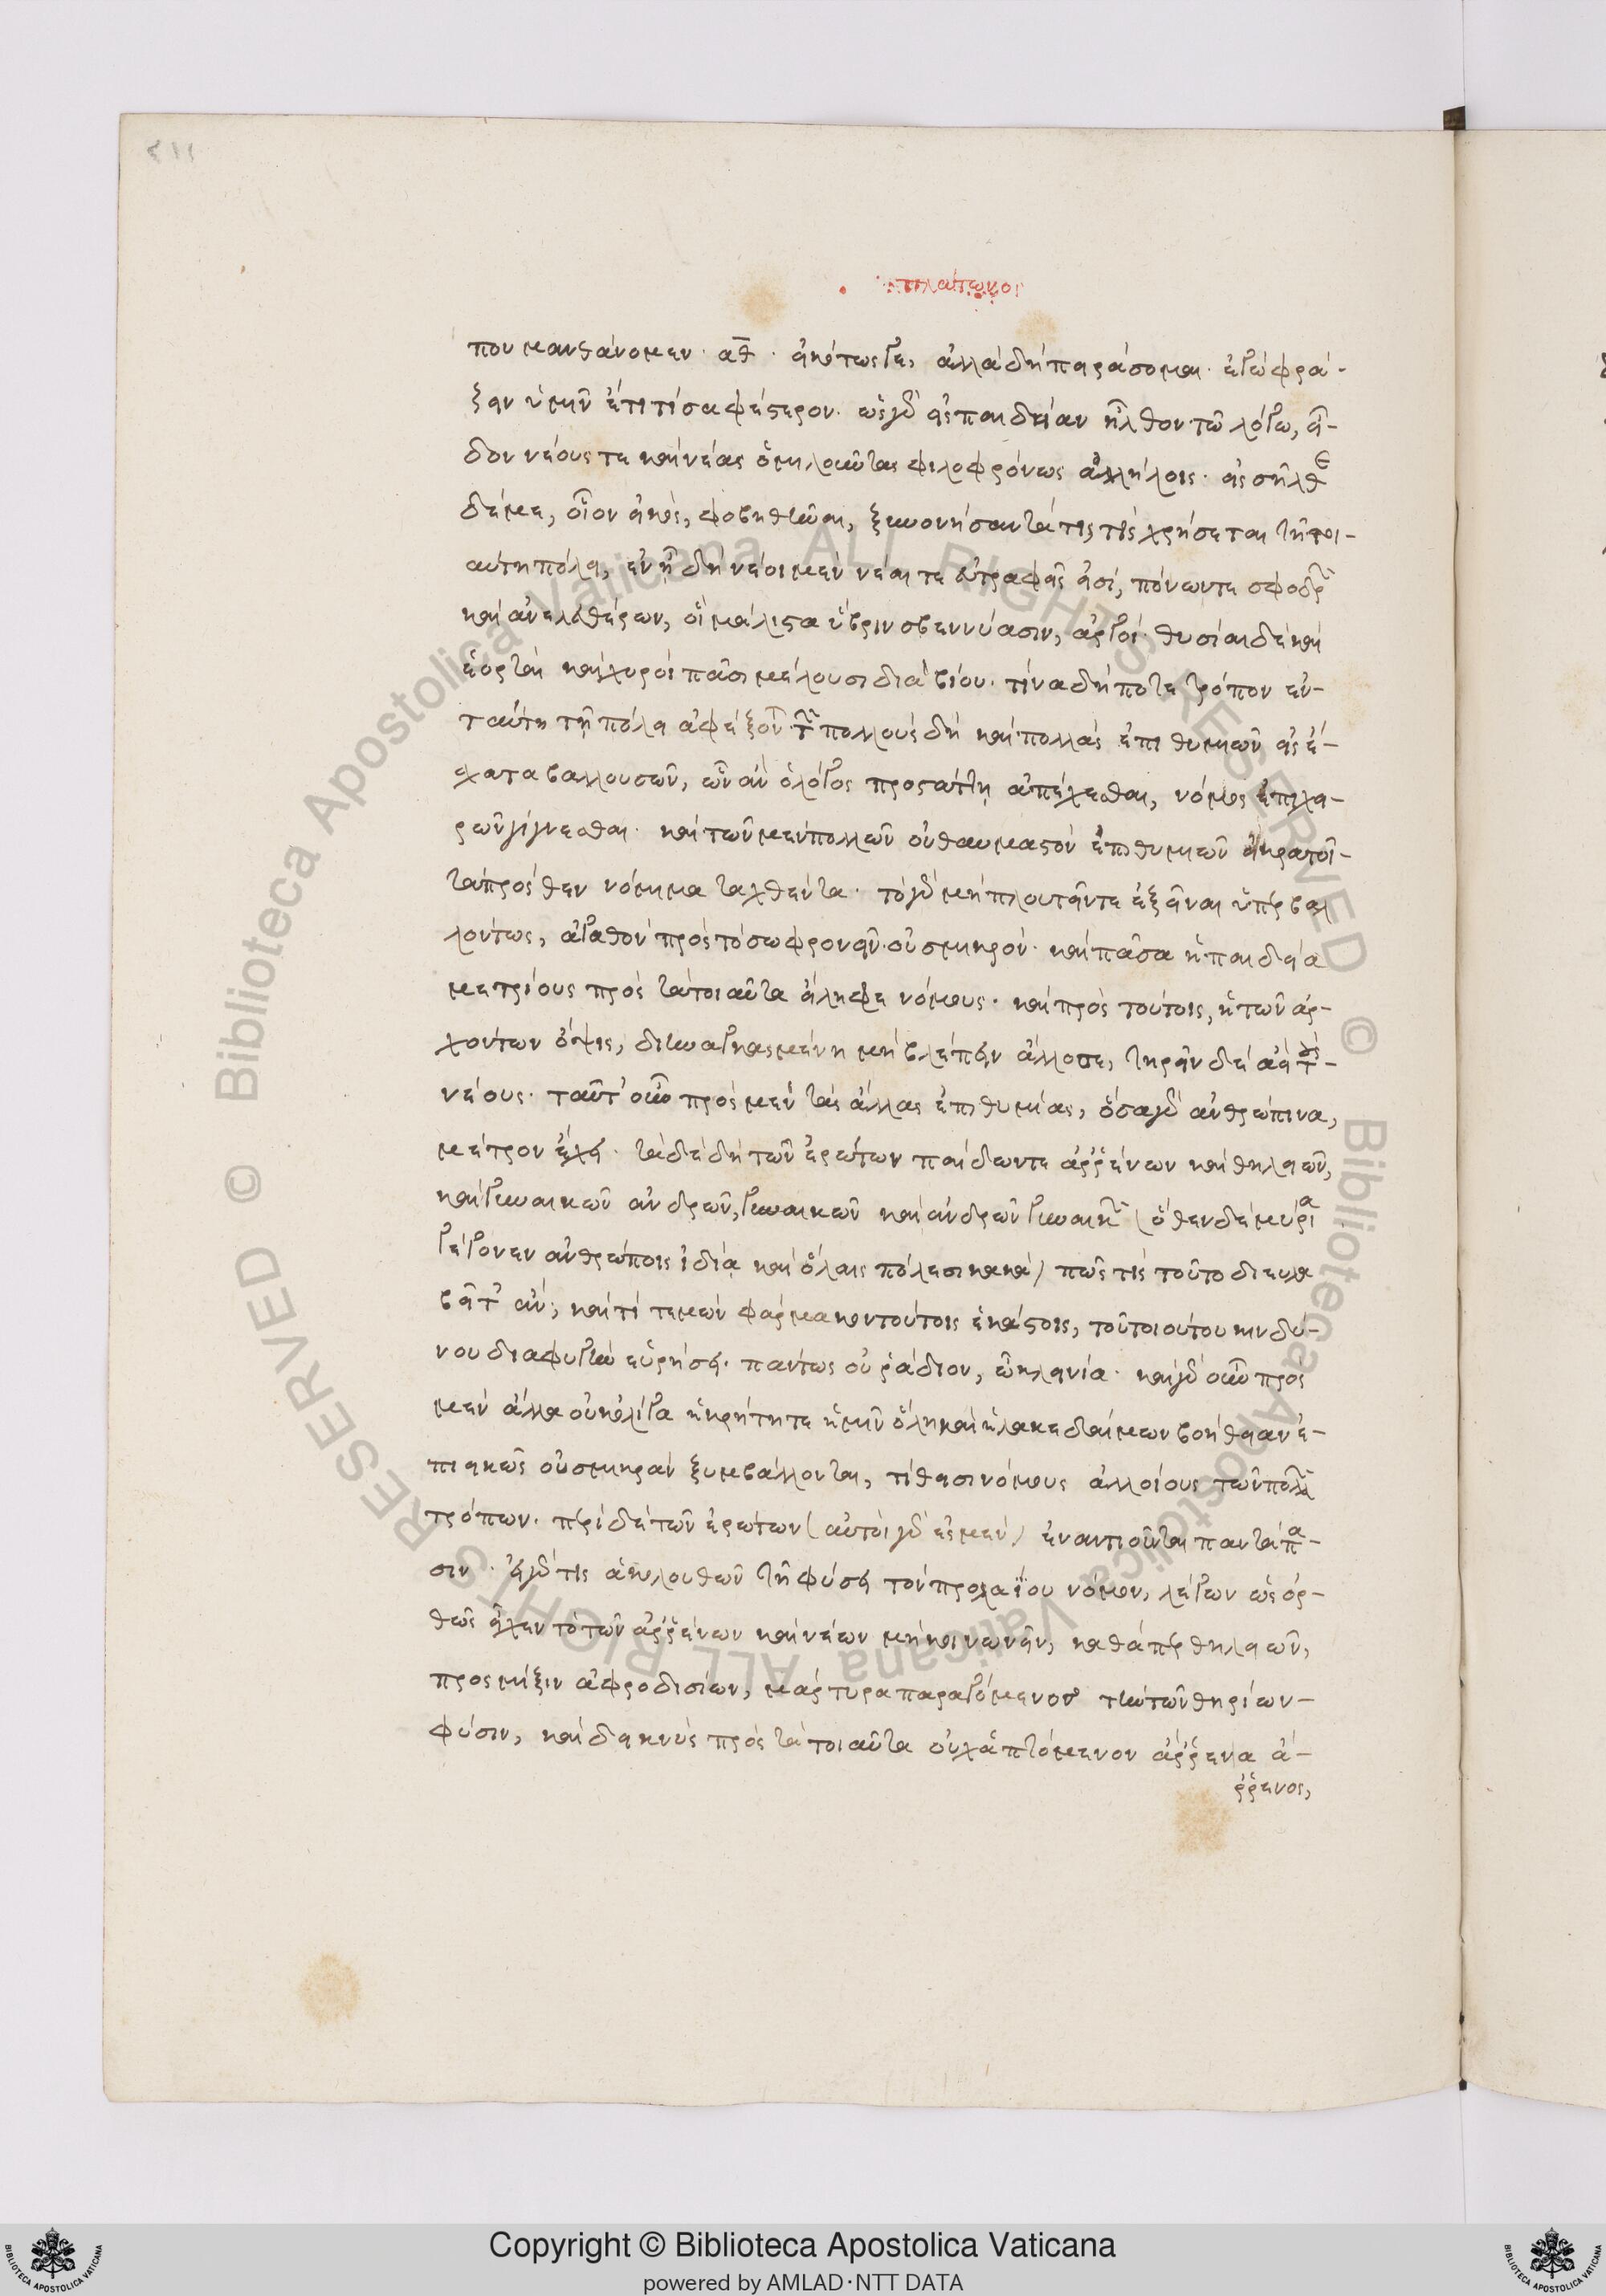 πλάτωνος
που μανθάνομεν· αθ· εἰκότως γε, ἀλλὰ δὴ πειράσομαι ἐγὼ φρά-
ζειν ὑμῖν ἔτι τι σαφέστερον· ὡς γὰρ εἰς παιδείαν ἦλθον τῷ λόγῳ, εἶ-
δον νέους τε καὶ νέας ὁμιλοῦντας φιλοφρόνως ἀλλήλοις· εἰσῆλθε
δέ με, οἷον εἰκός, φοβηθῆναι, ξυννοήσαντα τίς τις χρήσεται τῇ τοι-
αύτῃ πόλει, ἐν ᾗ δὴ νέοι μὲν νέαι τε εὐτραφεῖς εἰσί, πόνων τε σφοδρῶν
καὶ ἀνελευθέρων, οἳ μάλιστα ὕβριν σβεννύασιν, ἀργοί· θυσίαι δὲ καὶ
ἑορταὶ καὶ χοροὶ πᾶσι μέλουσι διὰ βίου· τίνα δή ποτε τρόπον ἐν
ταύτῃ τῇ πόλει ἀφέξονται τῶν πολλοὺς δὴ καὶ πολλὰς ἐπιθυμιῶν εἰς ἔ-
χατα βαλλουσῶν, ὧν ἂν ὁ λόγος προστάττῃ ἀπέχεσθαι, νόμος ἐπιχει-
ρῶν γίγνεσθαι· καὶ τῶν μὲν πολλῶν οὐ θαυμαστὸν ἐπιθυμιῶν εἰ κρατοῖ
τὰ πρόσθεν νόμιμα ταχθέντα· τὸ γὰρ μὴ πλουτεῖν τε ἐξεῖναι ὑπερβαλ
λόντως, ἀγαθὸν πρὸς τὸ σωφρονεῖν οὐ σμικρόν· καὶ πᾶσα ἡ παιδεία
μετρίους πρὸς τὰ τοιαῦτα εἴληφε νόμους· καὶ πρὸς τούτοις, ἡ τῶν ἀρ-
χόντων ὄψις, διηναγκασμένη μὴ βλέπειν ἄλλοσε, τηρεῖν δὲ ἀεὶ τοὺς
νέους· ταῦτ' οὖν πρὸς μὲν τὰς ἄλλας ἐπιθυμίας, ὅσα γὰρ ἀνθρώπινα,
μέτρον ἔχει· τὰ δὲ δὴ τῶν ἐρώτων παίδων τε ἀῤῥένων καὶ θηλειῶν,
καὶ γυναικῶν ἀνδρῶν, γυναικῶν καὶ ἀνδρῶν γυναικῶν (ὅθεν δὲ μυρία
γέγονεν ἀνθρώποις ἰδίᾳ καὶ ὅλαις πόλεσι κακά) πῶς τις τοῦτο διευλα
βεῖτ' ἄν; καὶ τί τεμὼν φάρμακον τούτοις ἑκάστοις, τοῦ τοιούτου κινδύ-
νου διαφυγὴν εὑρήσει· πάντως οὐ ῥάδιον, ὦ κλεινία· καὶ γὰρ οὖν πρὸς
μὲν ἄλλα οὐκ ὀλίγα ἡ κρήτη τε ἡμῖν ὅλη καὶ ἡ λακεδαίμων βοήθειαν ἐ-
πιεικῶς οὐ σμικρὰν ξυμβάλλονται, τιθεῖσι νόμους ἀλλοίους τῶν πολλῶν
τρόπων· περὶ δὲ τῶν ἐρώτων (αὐτοὶ γάρ ἐσμεν) ἐναντιοῦνται παντάπα-
σιν· εἰ γάρ τις ἀκολουθῶν τῇ φύσει τὸν πρὸ λαΐου νόμον, λέγων ὡς ὀρ-
θῶς εἶχεν τὸ τῶν ἀῤῥένων καὶ νέων μὴ κοινωνεῖν, καθάπερ θηλειῶν,
πρὸς μίξιν ἀφροδισίων, μάρτυρα παραγόμενος τὴν τῶν θηρίων
φύσιν, καὶ δεικνὺς πρὸς τὰ τοιαῦτα οὐχ ἁπτόμενον ἄῤῥενα ἄ-
ῤῥενος,
Copyright © Biblioteca Apostolica Vaticana
powered by AMLAD·NTT DATA